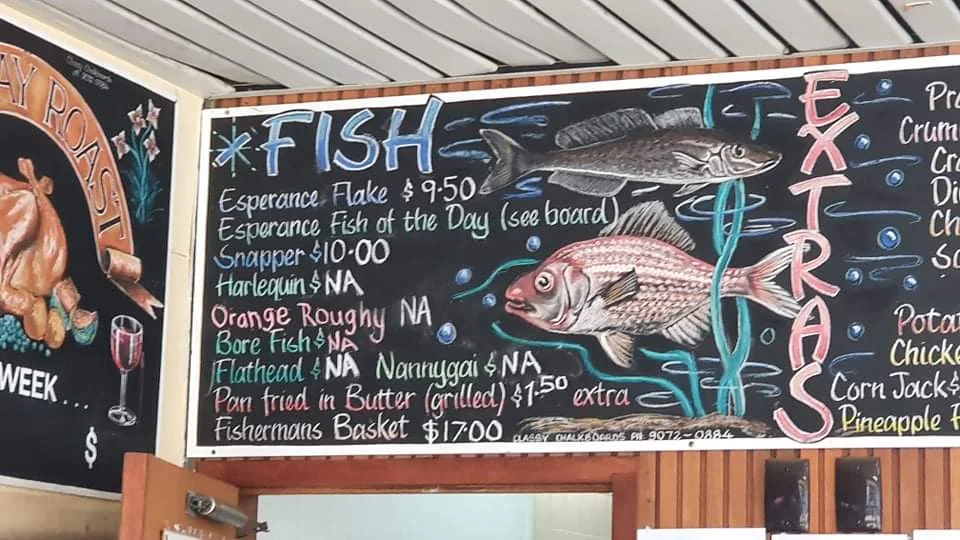 AY ROAST
WEEK...
$
*FISH
Esperance Flake $9.50
Esperance Fish of the Day (see board)
Snapper $10.00
Harlequin $NA
Orange Roughy NA
Bore Fish $NA
Flathead $NA Nannygai $NA
Pan fried in Butter (grilled) $1.50 extra
Fishermans Basket $17.00
CLASSY CHALKBOARDS PH 9072-0884
EXTRAS
Pr
Crum
Cr
Di
Ch
Sc
Potat
Chicke
Corn Jack $
Pineapple F